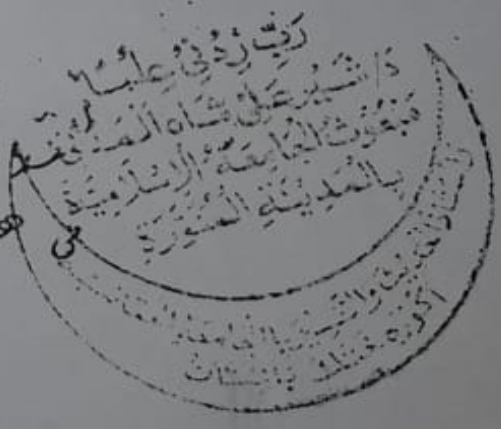 رَبِّ زِدْنِي عِلْمًا
د/شير علي شاه المدني
مبعوث الجامعة الإسلامية
بالمدينة المنورة
الحديث والتفسير بالجامعة
اكوره ختك باكستان